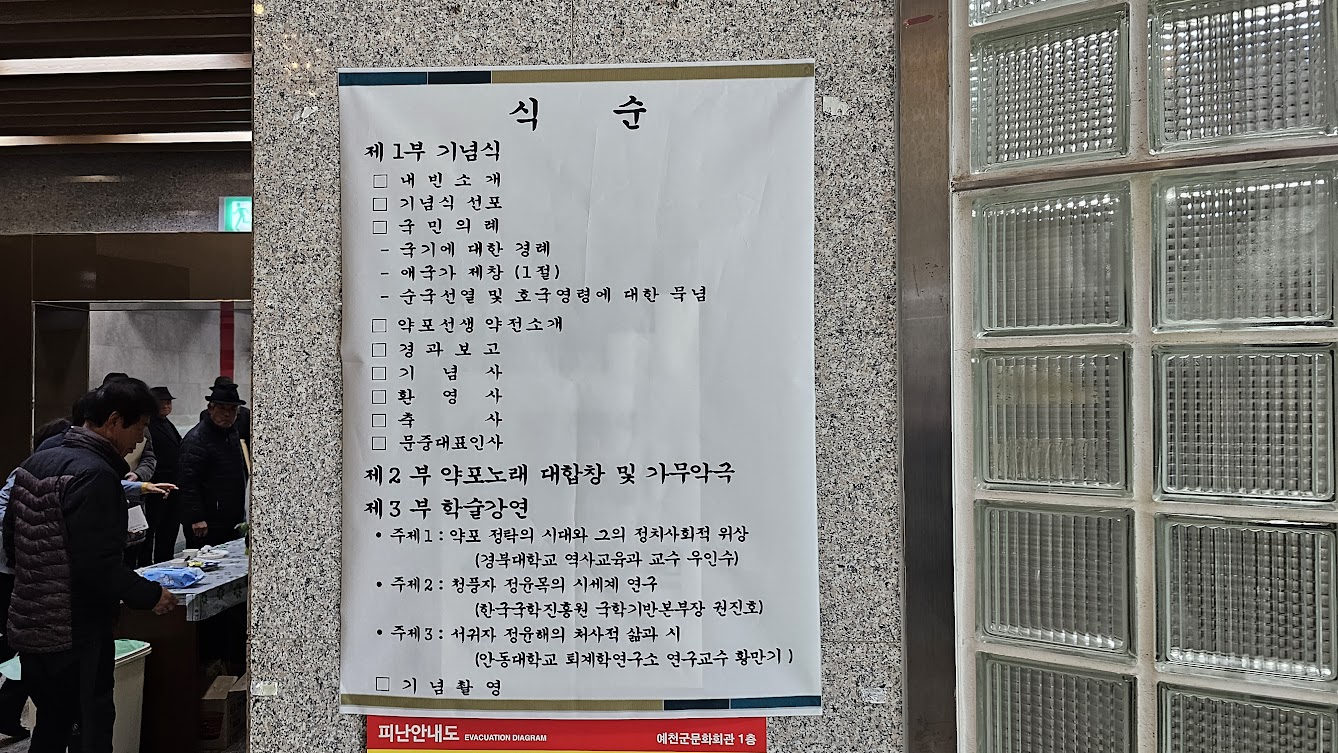 식 순
제 1부 기념식
□ 내 빈 소 개
□ 기념식 선포
□ 국 민 의 례
- 국기에 대한 경례
- 애국가 제창 (1절)
- 순국선열 및 호국영령에 대한 묵념
□ 약포선생 약전소개
□ 경 과 보 고
□ 기 념 사
□ 환 영 사
□ 축 사
□ 문중대표인사
제 2 부 약포노래 대합창 및 가무악극
제 3 부 학술강연
• 주제 1 : 약포 정탁의 시대와 그의 정치사회적 위상
(경북대학교 역사교육과 교수 우인수)
• 주제 2 : 청풍자 정윤목의 시세계 연구
(한국국학진흥원 국학기반본부장 권진호)
• 주제 3 : 서귀자 정윤해의 처사적 삶과 시
(안동대학교 퇴계학연구소 연구교수 황만기 )
□ 기 념 촬 영
피난안내도 EVACUATION DIAGRAM 예천군문화회관 1층